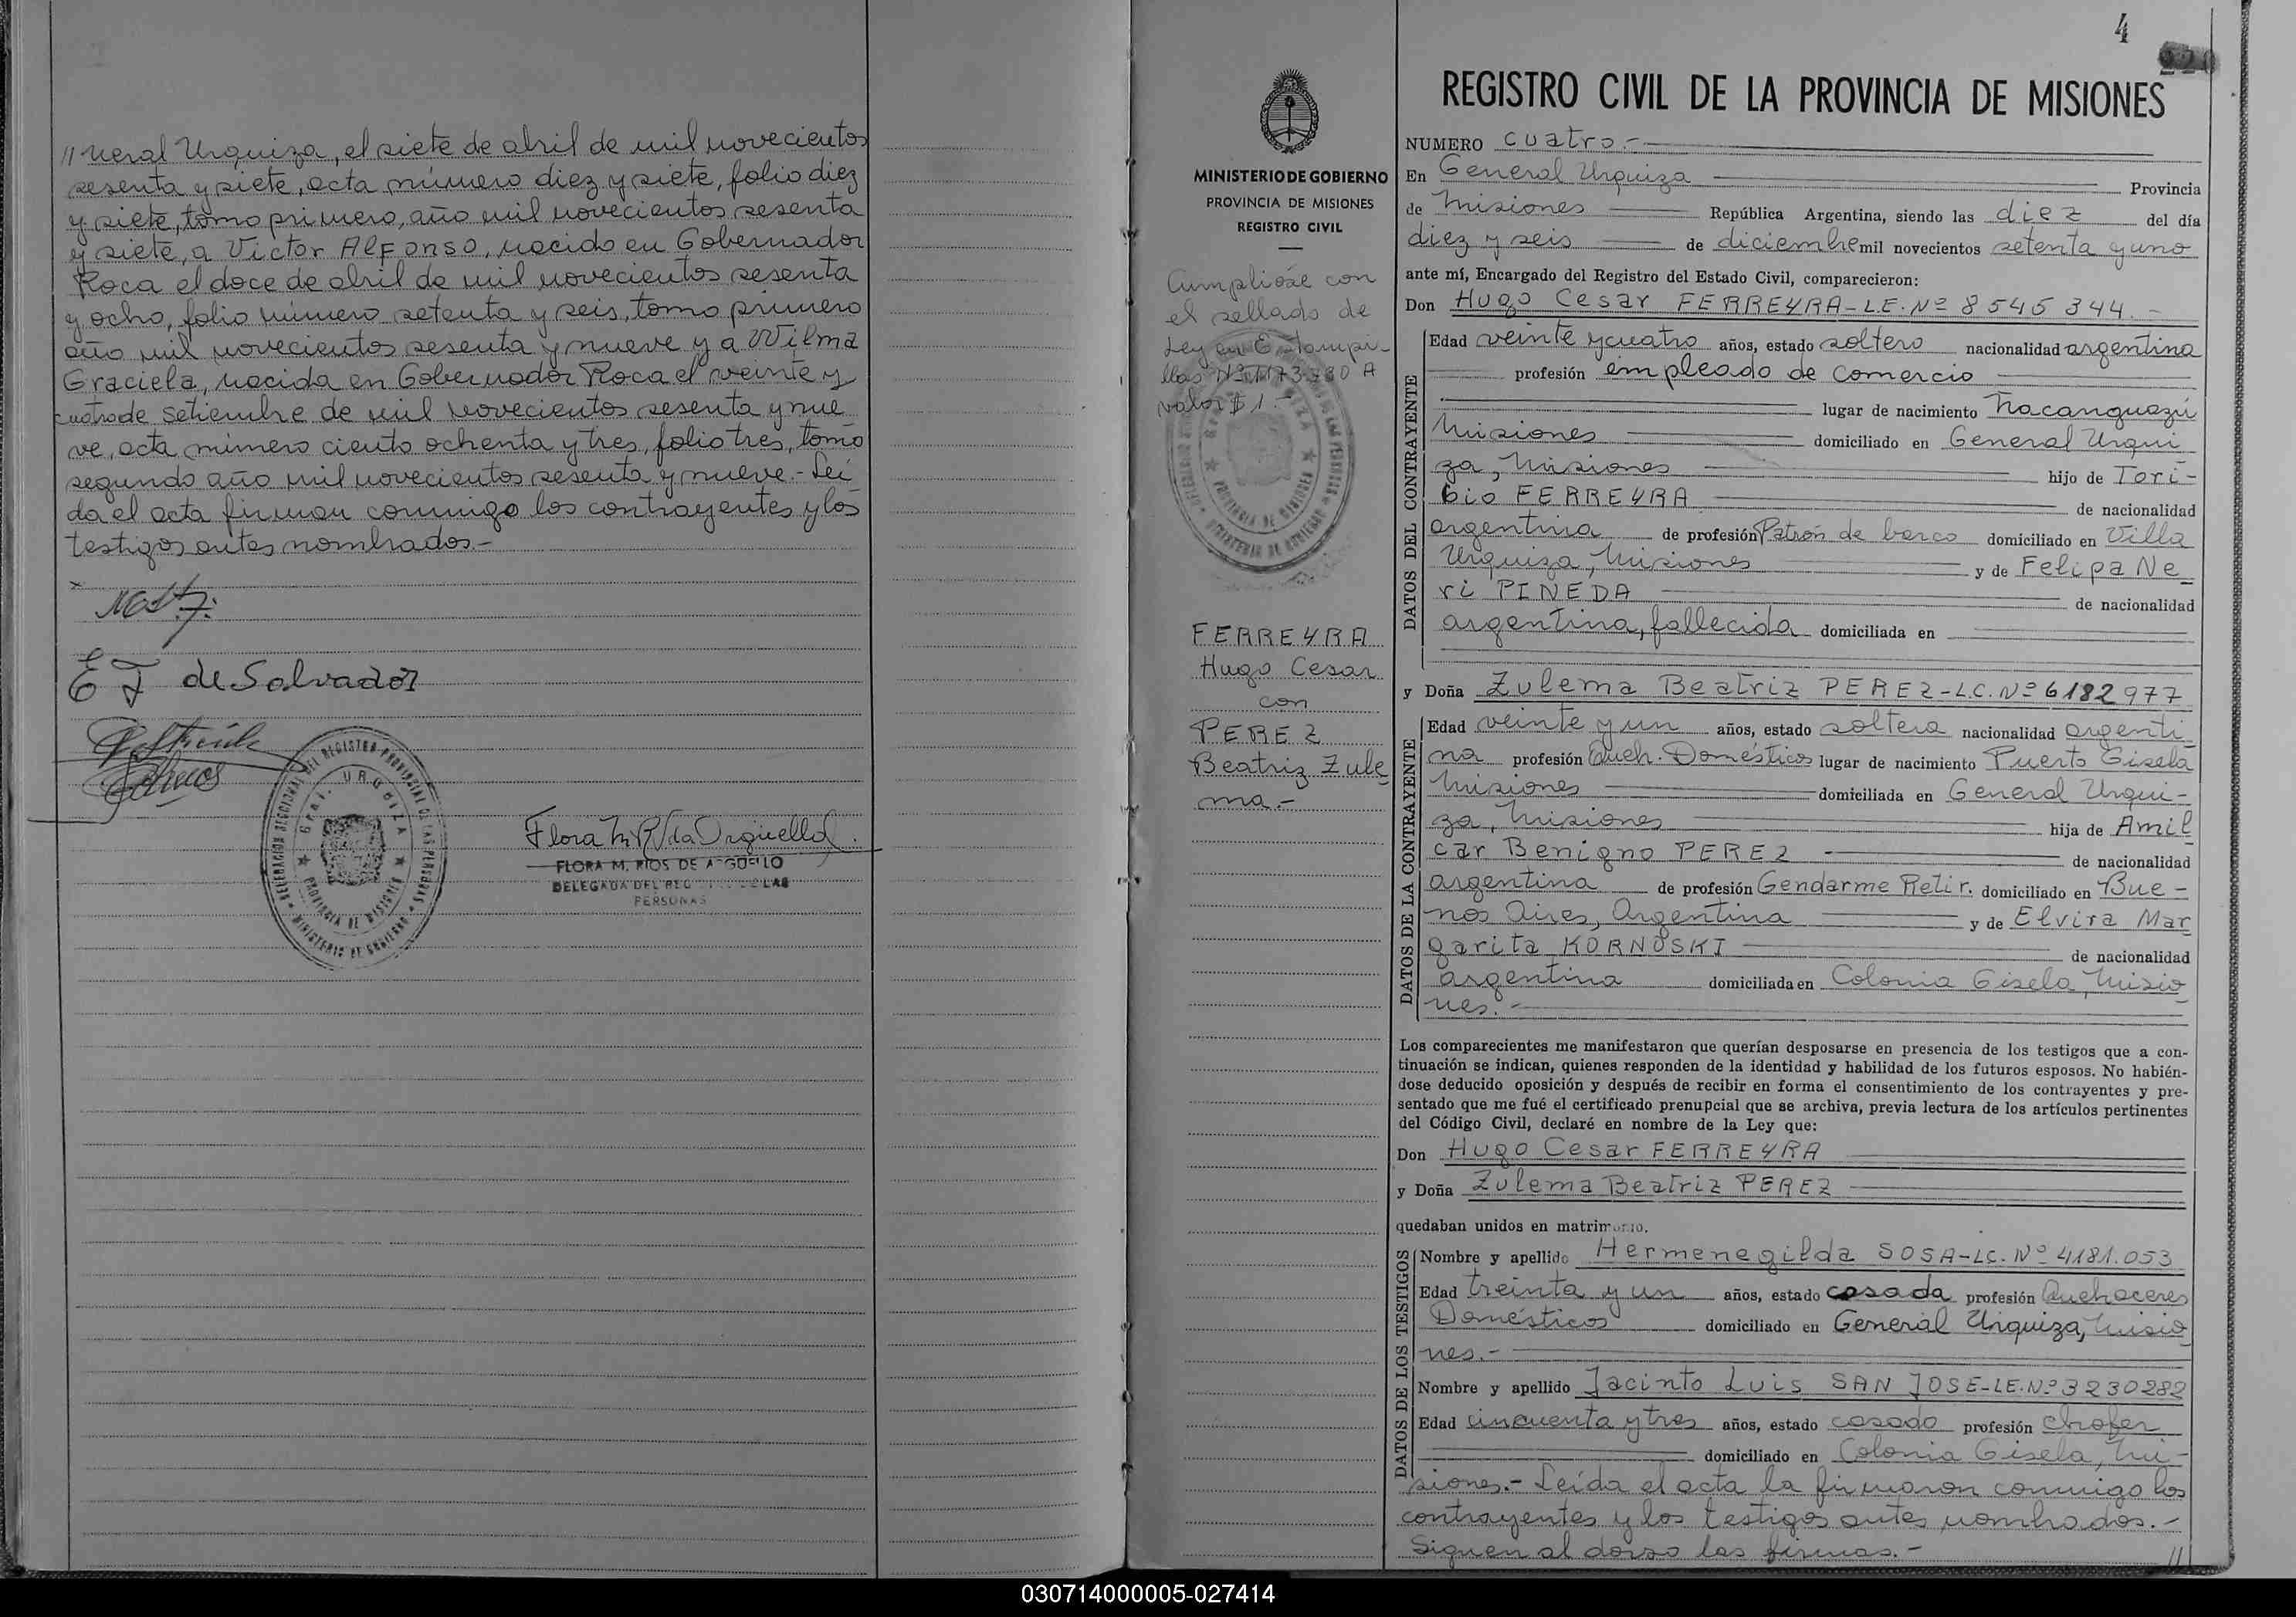 // neral Urquiza, el siete de abril de mil novecientos
sesenta y siete, acta número diez y siete, folio diez
y siete, tomo primero, año mil novecientos sesenta
y siete, a Victor Alfonso, nacido en Gobernador
Roca el doce de abril de mil novecientos sesenta
y ocho, folio número setenta y seis, tomo primero
año mil novecientos sesenta y nueve y a Wilma
Graciela, nacida en Gobernador Roca el veinte y
cuatro de setiembre de mil novecientos sesenta y nue
ve, acta número ciento ochenta y tres, folio tres, tomo
segundo año mil novecientos sesenta y nueve.- Leí
da el acta firman conmigo los contrayentes y los
testigos antes nombrados.-
E J de Salvador
GRAL. URQUIZA
PROVINCIA DE MISIONES
MINISTERIO DE GOBIERNO
FLORA M. RIOS DE ARGÜELLO
DELEGADA DEL REG LAS
PERSONAS
4
MINISTERIO DE GOBIERNO
PROVINCIA DE MISIONES
REGISTRO CIVIL
Cumplióse con
el sellado de
Ley en Estampi-
llas
valor $ 1.-
PROVINCIA DE MISIONES
FERREYRA
Hugo Cesar
con
PEREZ
Beatriz Zule
ma.-
REGISTRO CIVIL DE LA PROVINCIA DE MISIONES
NUMERO cuatro.-
En General Urquiza Provincia
de Misiones República Argentina, siendo las diez del día
diez y seis de diciembre mil novecientos setenta y uno
ante mí, Encargado del Registro del Estado Civil, comparecieron:
Don Hugo Cesar FERREYRA-L.E.Nº 8545344.-
DATOS DEL CONTRAYENTE
Edad veinte y cuatro años, estado soltero nacionalidad argentina
profesión empleado de comercio
lugar de nacimiento Ñacanguazú
Misiones domiciliado en General Urqui
za, Misiones hijo de Tori-
bio FERREYRA de nacionalidad
argentina de profesión Patrón de barco domiciliado en Villa
Urquiza, Misiones y de Felipa Ne
ri PINEDA de nacionalidad
argentina, fallecida domiciliada en
y Doña Zulema Beatriz PEREZ-L.C.Nº 6182977
DATOS DE LA CONTRAYENTE
Edad veinte y un años, estado soltera nacionalidad argenti
na profesión Queh. Domésticos lugar de nacimiento Puerto Gisela
Misiones domiciliada en General Urqui-
za, Misiones hija de Amil
car Benigno PEREZ de nacionalidad
argentina de profesión Gendarme Retir. domiciliado en Bue-
nos Aires, Argentina y de Elvira Mar
garita KORNOSKI de nacionalidad
argentina domiciliada en Colonia Gisela, Misio
nes.-
Los comparecientes me manifestaron que querían desposarse en presencia de los testigos que a con-
tinuación se indican, quienes responden de la identidad y habilidad de los futuros esposos. No habién-
dose deducido oposición y después de recibir en forma el consentimiento de los contrayentes y pre-
sentado que me fué el certificado prenupcial que se archiva, previa lectura de los artículos pertinentes
del Código Civil, declaré en nombre de la Ley que:
Don Hugo Cesar FERREYRA
y Doña Zulema Beatriz PEREZ
quedaban unidos en matrimonio.
DATOS DE LOS TESTIGOS
Nombre y apellido Hermenegilda SOSA-LC.Nº 4181.053
Edad treinta y un años, estado casada profesión Quehaceres
Domésticos domiciliado en General Urquiza, Misio
nes.-
Nombre y apellido Jacinto Luis SAN JOSE-LE.Nº 3230282
Edad cincuenta y tres años, estado casado profesión chofer
domiciliado en Colonia Gisela, Mi-
siones.- Leída el acta la firmaron conmigo los
contrayentes y los testigos antes nombrados.-
Siguen al dorso las firmas.- //
030714000005-027414